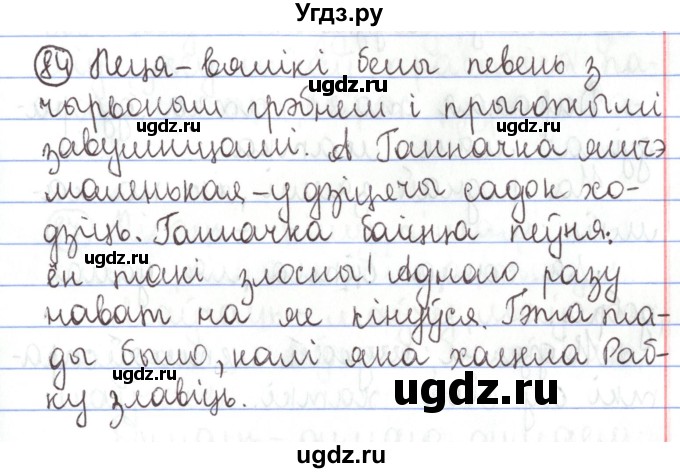 Угдз.ру
84 Пеця – вялікі белы певень з
чырвоным грэбнем і прыгожымі
завушніцамі. А Ганначка яшчэ
маленькая – у дзіцячы садок хо-
дзіць. Ганначка баіцца пеўня:
ён такі злосны! Аднаго разу
нават на яе кінуўся. Гэта та-
ды было, калі яна хацела Раб-
ку злавіць.
gdz.ru
gdz.ru
gdz.ru
gdz.ru
gdz.ru
gdz.ru
ugdz.ru